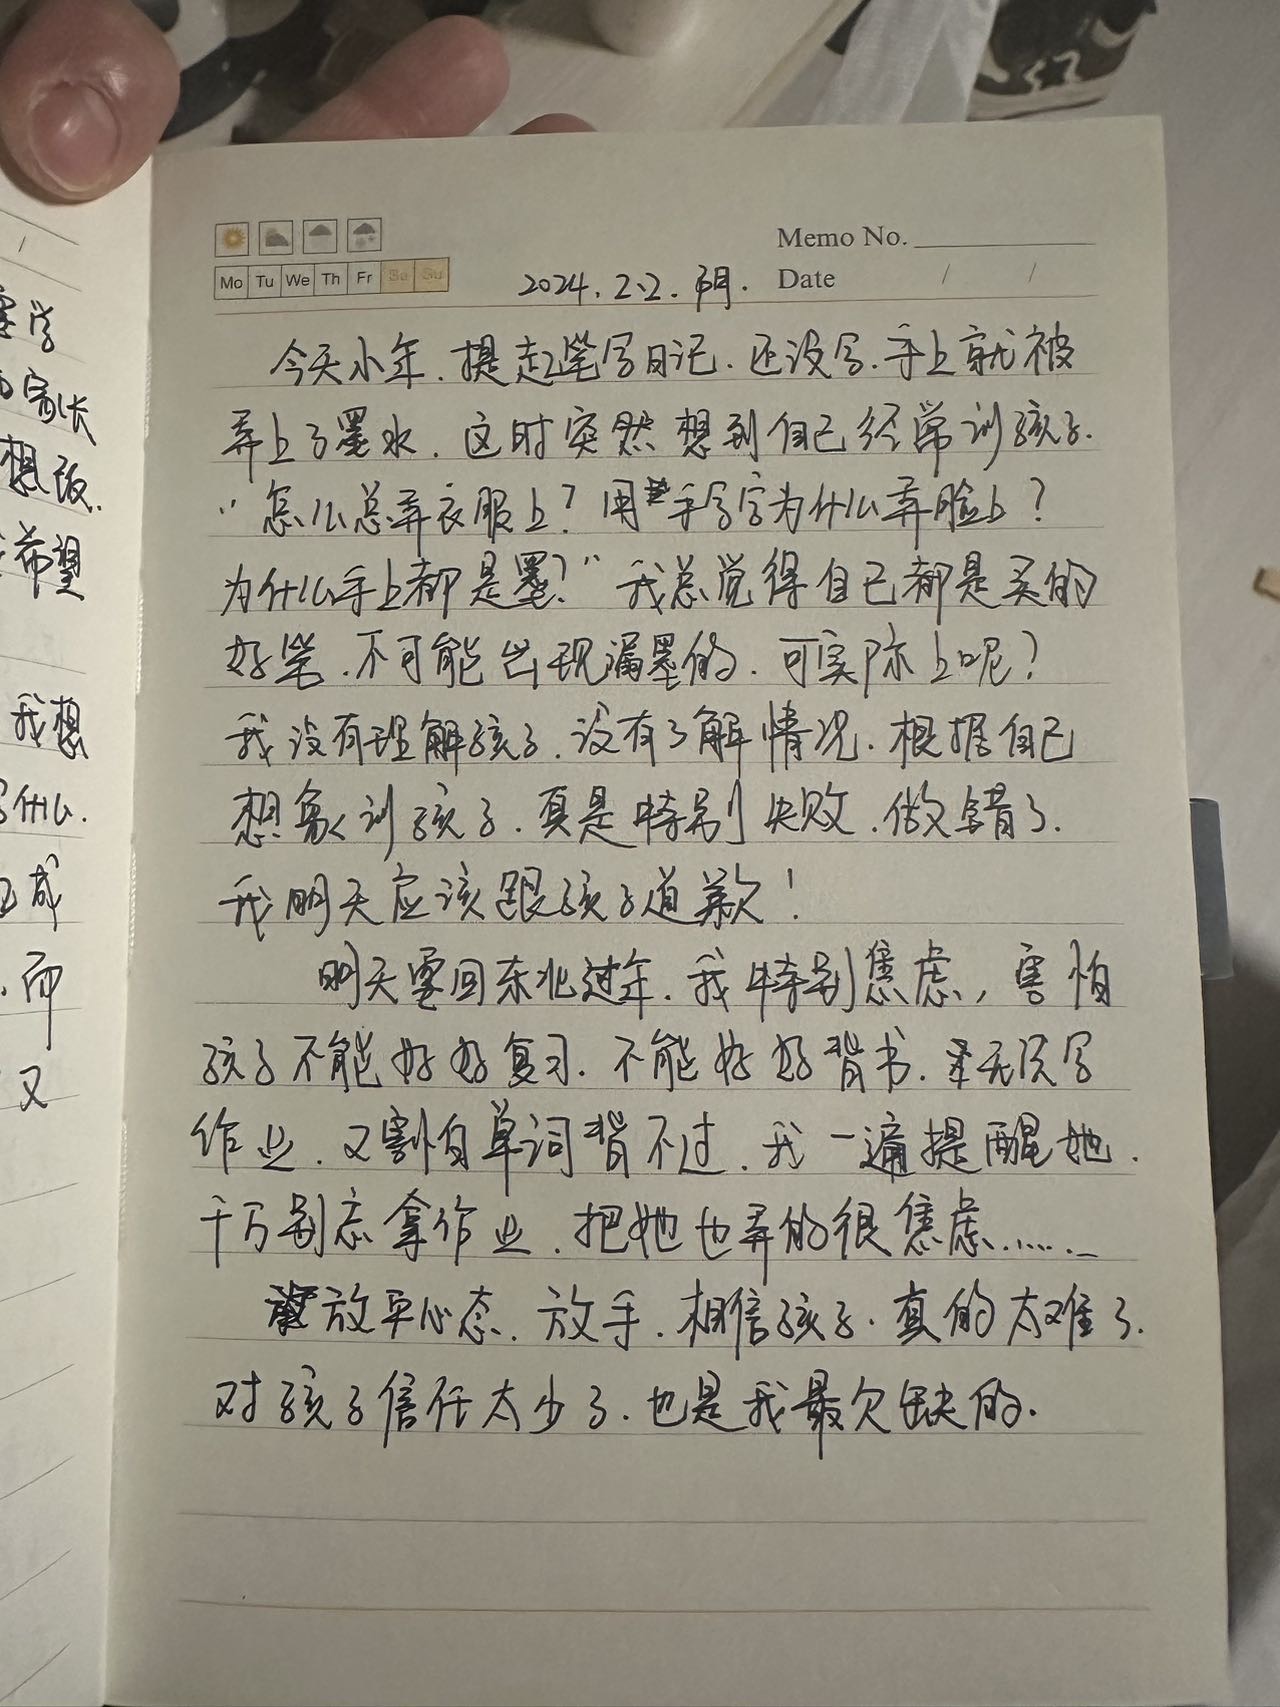 Memo No.
Mo Tu We Th Fr Sa Su
2024.2.2.阴. Date / /
今天小年.提起笔写日记.还没写.手上就被
弄上了墨水.这时突然想到自己经常训孩子.
“怎么总弄衣服上?用手写字为什么弄脸上?
为什么手上都是墨?”我总觉得自己都是买的
好笔.不可能出现漏墨的.可实际上呢?
我没有理解孩子.没有了解情况.根据自己
想象训孩子.真是特别失败.做错了.
我明天应该跟孩子道歉!
明天要回东北过年.我特别焦虑,害怕
孩子不能好好复习.不能好好背书.无法写
作业.又害怕单词背不过.我一遍提醒她.
千万别忘拿作业.把她也弄的很焦虑......
放平心态.放手.相信孩子.真的太难了.
对孩子信任太少了.也是我最欠缺的.
/
家长
想
希望
我想
什么.
成
.而
又